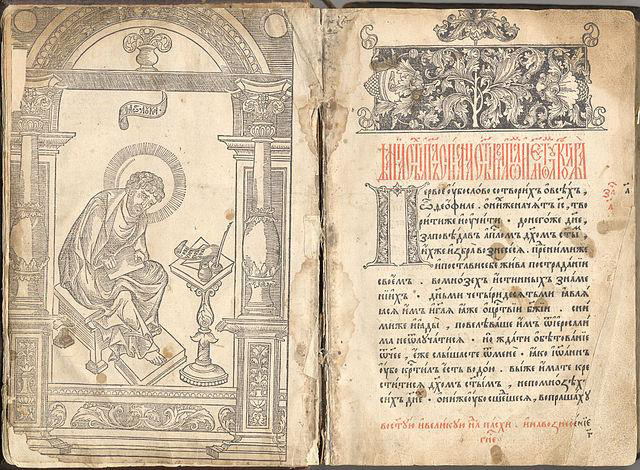 лука
Первое ѹбо слово сотворихъ ѡ всѣхъ,
ѽ Ѳеофиле. ѡ нихже начатъ і҃с, тво
рити же и ѹчити · до негоже дн҃е,
заповѣдавъ апⷭ҇ломъ дх҃омъ ст҃ы,
ихже избра вознесесѧ. пред нимиже
и постави себе жива по страданїи
своемъ. во мнозѣхъ истинныхъ знаме
нїихъ · дньми четыридесѧтьми ꙗвлѧ
ꙗсѧ имъ, и гл҃ѧ ꙗже ѡ црⷭ҇твїи бж҃їи · с ни
миже и ꙗды, повелѣваше имъ ѿ іерⷭ҇ли
ма не ѿлучатисѧ · но ждати обѣтованїе
ѿчее, еже слышасте ѿ мене · ꙗко іѡаннъ
ѹбо крⷭ҇тилъ есть водою. вы же имате кре
ститисѧ дх҃омъ ст҃ымъ, не по мнозѣхъ
сихъ дн҃е · ѡни же ѹбо сшедшесѧ, вопрашаху
в ст҃ую и великую нⷣлю пасхи. и на вознесенїе
гн҃е